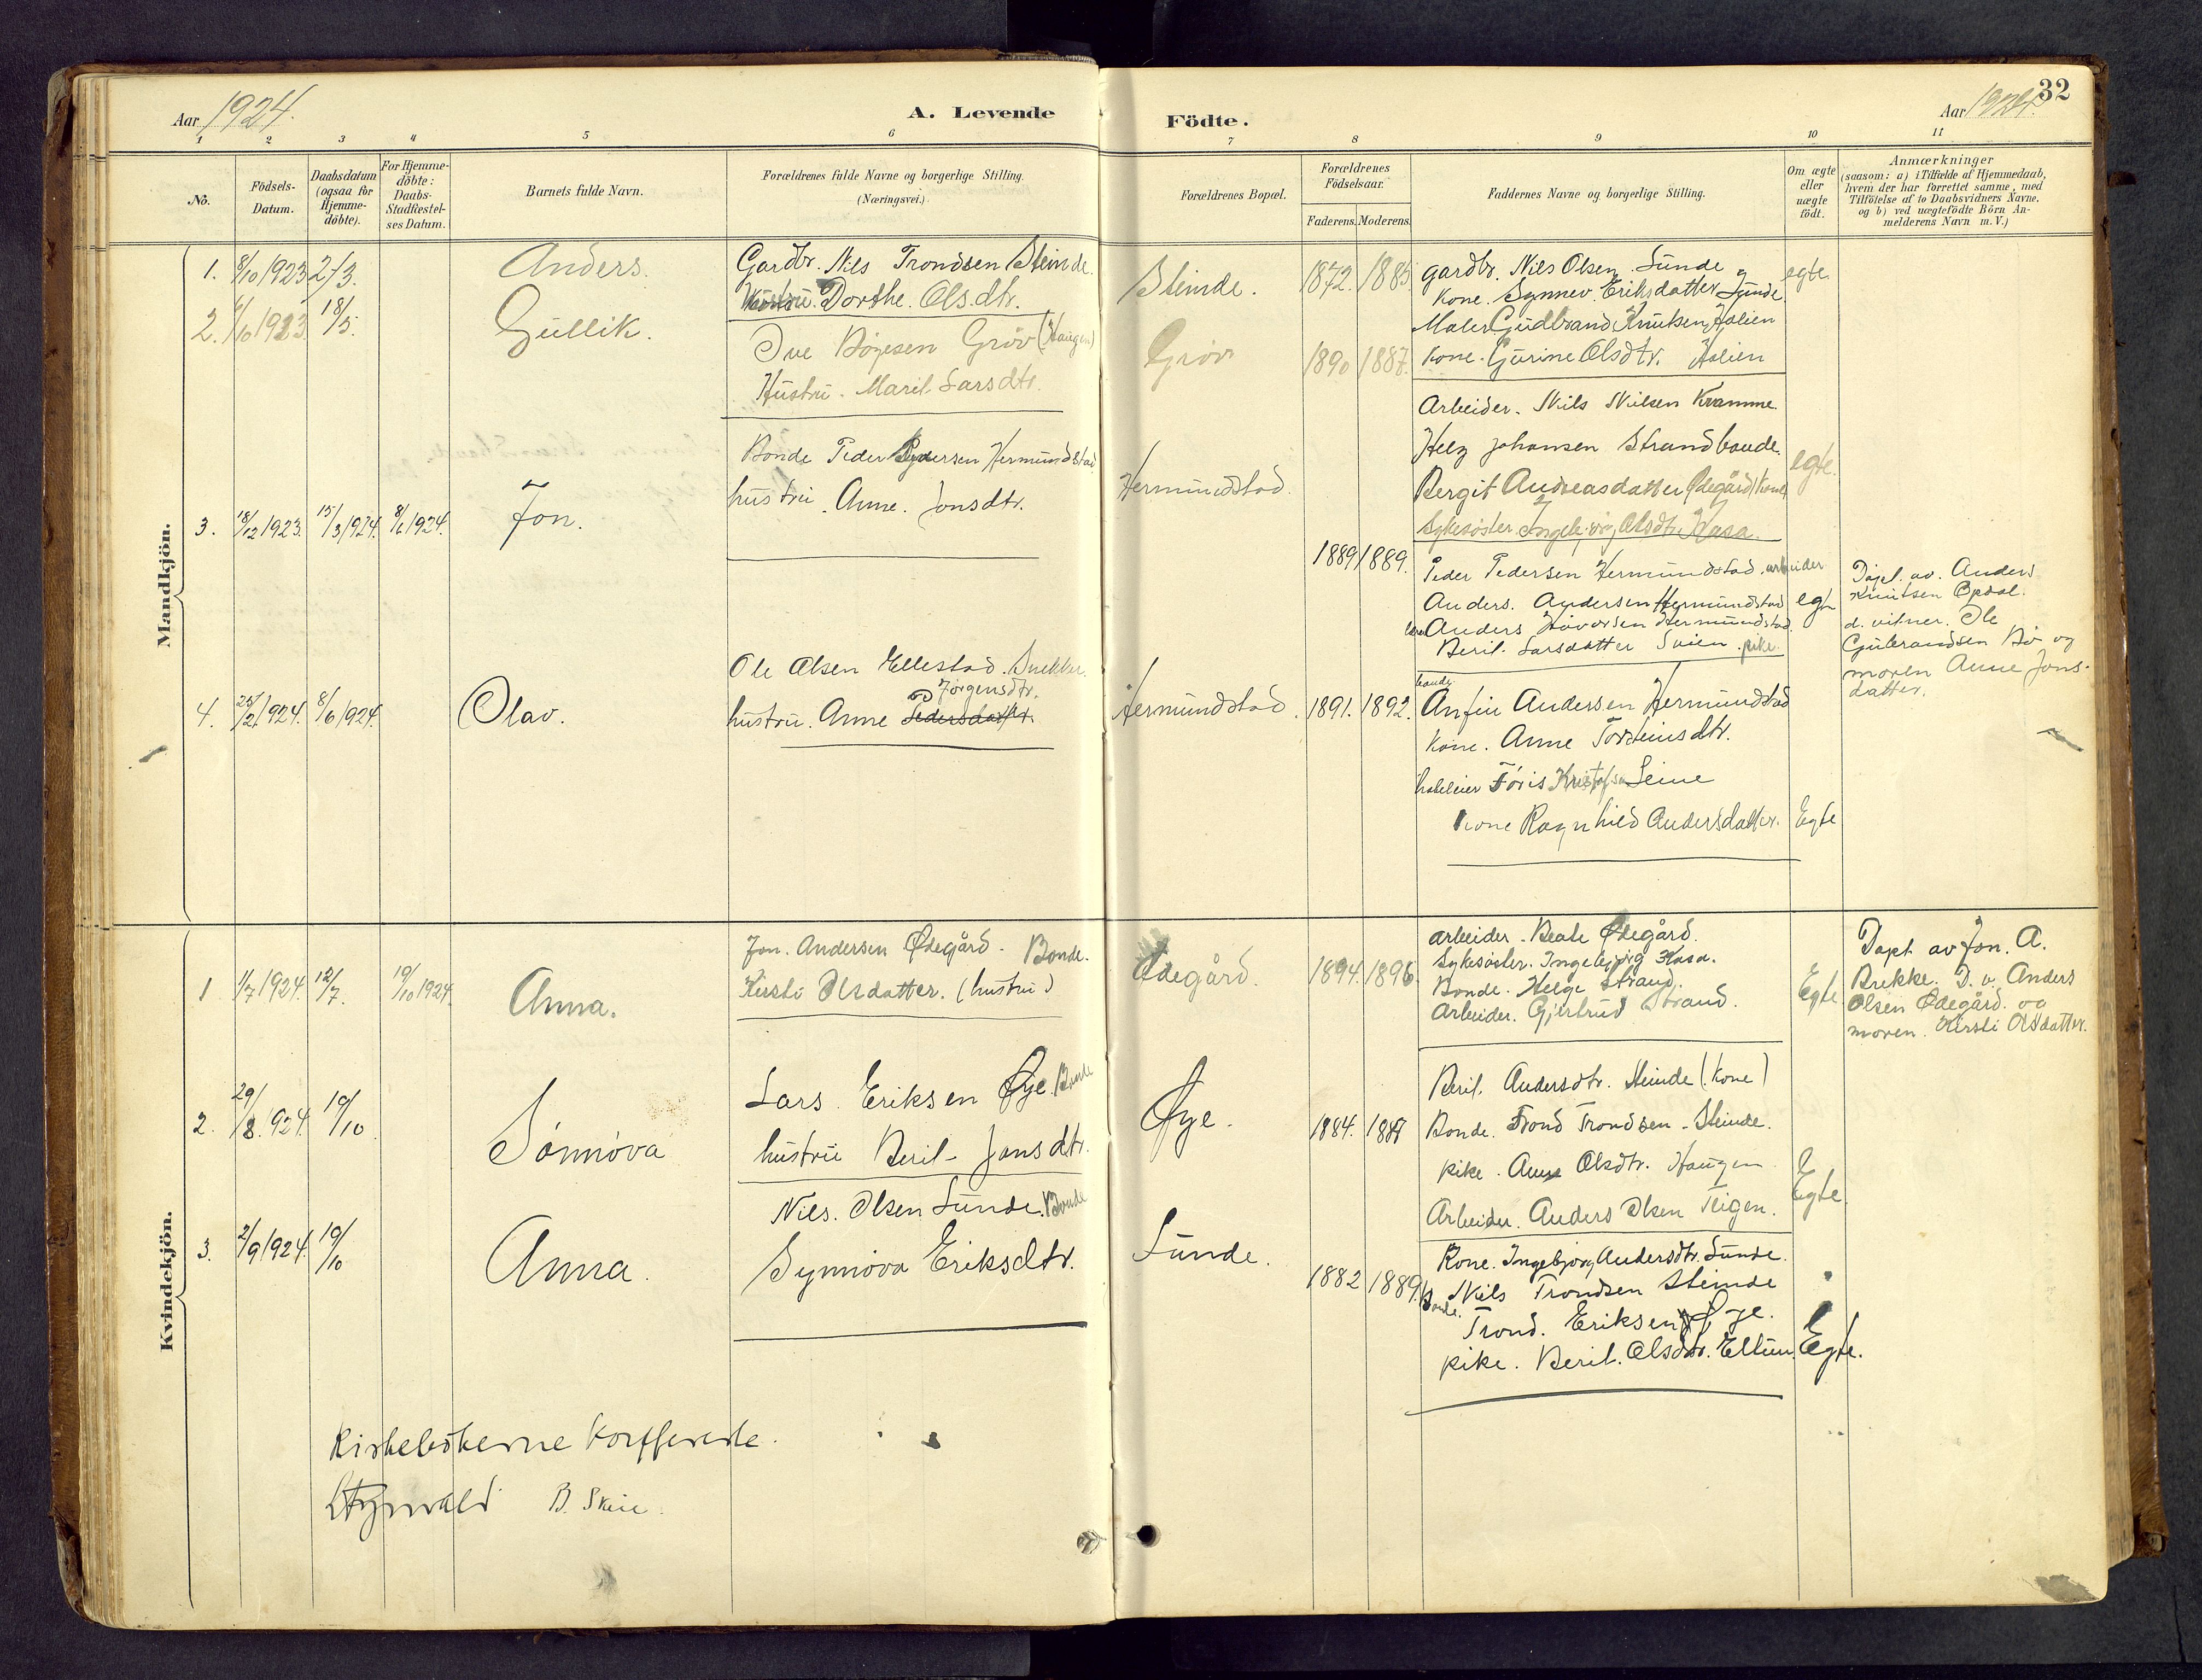 Aar 1924.
A. Levende
Födte.
Aar 1924.
32
1 2 3 4 5 6 7 8 9 10 11
No.
Födsels-
Datum.
Daabsdatum
(ogsaa for
Hjemme-
döbte).
For Hjemme-
döbte:
Daabs-
Stadfæstel-
ses Datum.
Barnets fulde Navn.
Forældrenes fulde Navne og borgerlige Stilling.
(Næringsvei.)
Forældrenes Bopæl.
Forældrenes
Födselsaar.
Faderens. Moderens.
Faddernes Navne og borgerlige Stilling.
Om ægte
eller
uægte
födt.
Anmærkninger
(saasom: a) i Tilfælde af Hjemmedaab,
hvem der har forrettet samme, med
Tilföielse af to Daabsvidners Navne,
og b) ved uægtefödte Börn An-
melderens Navn m. V.)
Mandkjön.
1. 8/10 1923 2/3. Anders.
Gardbr. Nils Trondsen Steinde.
Hustru. Dorthe. Olsdtr.
Steinde. 1872. 1885
gardbr. Nils Olsen Sunde
kone. Synnev. Eriksdatter Sunde.
Maler Gudbrand Knutsen Hølien
kone. Gurine Olsdtr. Hølien
egte
2. /10 1923 18/5. Gullik.
Ove Bøyesen Gröv (Haugen)
Hustru. Marit Larsdtr.
Gröv 1890 1887.
Arbeider. Nils Nilsen Kramme.
Helg Johansen Strand bonde.
Bergit Andreasdatter Ødegård (kone)
Sykesöster Ingebjörg Olsdtr. Hasa.
egte.
3. 18/12 1923. 15/3 1924. 8/6 1924. Jon.
Bonde Peder Pedersen Hermundstad
hustru. Anne. Jonsdtr.
Hermundstad. 1889 1889.
Peder Pedersen Hermundstad. arbeider
Anders. Andersen Hermundstad
Anders Håvarsen Hermundstad.
Berit. Larsdatter Svien pike.
egte
Döpt. av. Anders
Knutsen Opdal.
d. vitner. Ole
Gulbrandsen Bö og
moren Anne Jons-
datter.
4. 25/2 1924. 8/6 1924. Olav.
Ole Olsen Ellestad. Snekker.
Jörgensdtr.
hustru. Anne Pedersdatter.
Hermundstad. 1891. 1892.
bonde
Anfin Andersen Hermundstad
kone. Anne Torsteinsdtr.
hoteleier Töris Kristofsen Leine
kone Ragnhild Andersdatter.
Egte
Kvindekjön.
1 1/7 1924. 12/7. 19/10 1924 Anna.
Jon. Andersen Ødegård. Bonde.
Kirsti Olsdatter. (hustru)
Ødegård. 1894. 1896.
arbeider. Beate Ødegård.
Sykesöster. Ingebjörg Hasa.
Bonde. Helge Strand.
Arbeider. Gjertrud Strand.
Egte
Döpt av Jon. A.
Brekke. D. v. Anders
Olsen Ødegård. og
moren. Kirsti Olsdatter.
2. 29/8. 924. 19/10 Sönnöva
Lars. Eriksen Øye. Bonde
hustru Berit Jonsdtr.
Øye. 1884. 1887
Berit. Andersdtr. Steinde (kone)
Bonde. Trond Trondsen. Steinde.
pike. Anne Olsdtr. Haugen
Arbeider. Anders Olsen Teigen.
Egte.
3. 2/9 1924. 19/10 Anna.
Nils. Olsen Sunde. Bonde
Synnöva Eriksdtr.
Sunde. 1882 1889.
Kone. Ingebjörg Andersdtr. Sunde.
Bonde. Nils Trondsen Steinde
Trond. Eriksen Øye.
pike. Berit. Olsdtr. Ellun.
Egte.
Kirkebökerne konfererte.
B. Skeie.